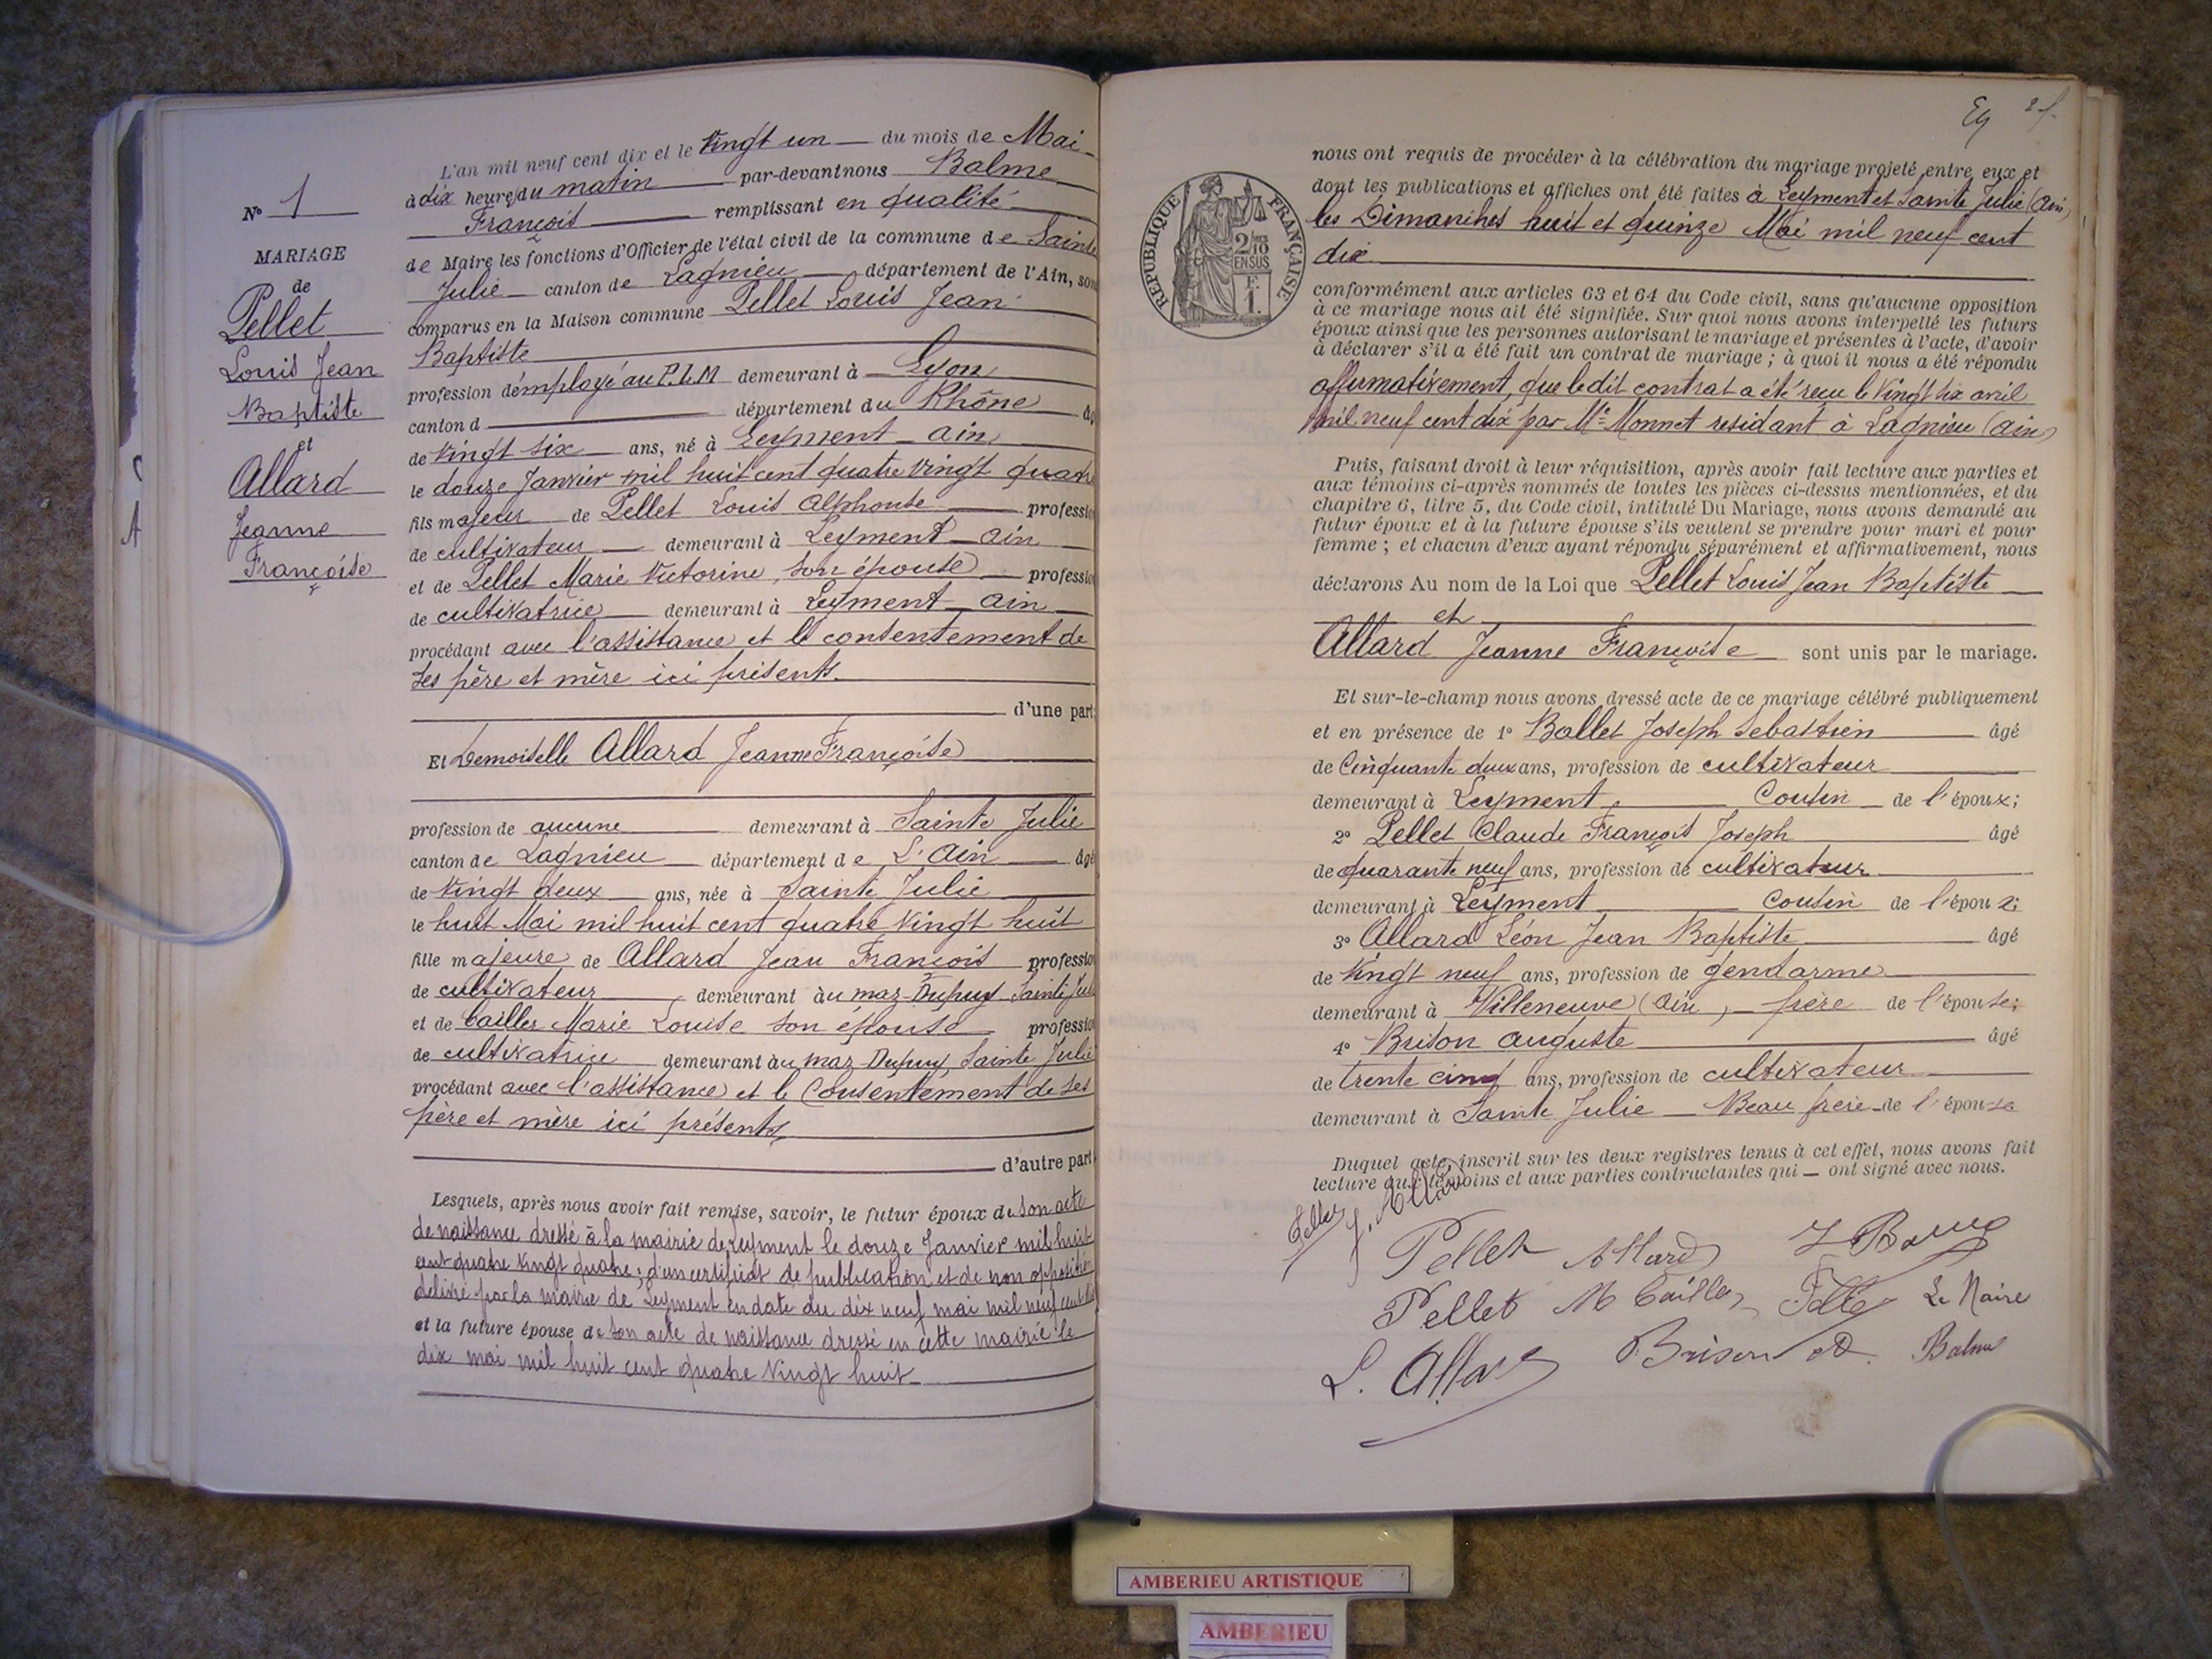 N° 1
MARIAGE
de
Pellet
Louis Jean
Baptiste
et
Allard
Jeanne
Françoise
C
A
L'an mil neuf cent dix et le vingt un du mois de Mai
à dix heures du matin par-devant nous Balme
François remplissant en qualité
de Maire les fonctions d'Officier de l'état civil de la commune de Sainte
Julie canton de Lagnieu département de l'Ain, son
comparus en la Maison commune Pellet Louis Jean
Baptiste
profession d'employé au P.L.M demeurant à Lyon
canton d département du Rhône âg
de vingt six ans, né à Leyment Ain
le douze Janvier mil huit cent quatre vingt quatre
fils majeur de Pellet Louis Alphonse professio
de cultivateur demeurant à Leyment Ain
et de Pellet Marie Victorine, son épouse professio
de cultivatrice demeurant à Leyment Ain
procédant avec l'assistance et le consentement de
ses père et mère ici présents.
d'une part;
Et Demoiselle Allard Jeanne Françoise
profession de aucune demeurant à Sainte Julie
canton de Lagnieu département de L'Ain âgé
de vingt deux ans, née à Sainte Julie
le huit Mai mil huit cent quatre vingt huit
fille majeure de Allard Jean François professio
de cultivateur demeurant au maz Dupuy Sainte Juli
et de Cailler Marie Louise son épouse professio
de cultivatrice demeurant au maz Dupuy, Sainte Julie
procédant avec l'assistance et le Consentement de ses
père et mère ici présents,
d'autre part
Lesquels, après nous avoir fait remise, savoir, le futur époux de son acte
de naissance dressé à la mairie de Leyment le douze Janvier mil huit
cent quatre vingt quatre; d'un certificat de publication et de non opposition
délivré par la mairie de Leyment en date du dix neuf mai mil neuf cent dix
et la future épouse de son acte de naissance dressé en cette mairie le
dix mai mil huit cent quatre vingt huit
2f.
nous ont requis de procéder à la célébration du mariage projeté entre eux et
dont les publications et affiches ont été faites à Leyment et Sainte Julie (Ain)
les Dimanches huit et quinze Mai mil neuf cent
dix
RÉPUBLIQUE FRANÇAISE
2/10
EN SUS
F.
1.
conformément aux articles 63 et 64 du Code civil, sans qu'aucune opposition
à ce mariage nous ait été signifiée. Sur quoi nous avons interpellé les futurs
époux ainsi que les personnes autorisant le mariage et présentes à l'acte, d'avoir
à déclarer s'il a été fait un contrat de mariage ; à quoi il nous a été répondu
affirmativement, que le dit contrat a été reçu le vingt six avril
mil neuf cent dix par Me Monnet residant à Lagnieu (Ain)
Puis, faisant droit à leur réquisition, après avoir fait lecture aux parties et
aux témoins ci-après nommés de toutes les pièces ci-dessus mentionnées, et du
chapitre 6, titre 5, du Code civil, intitulé Du Mariage, nous avons demandé au
futur époux et à la future épouse s'ils veulent se prendre pour mari et pour
femme ; et chacun d'eux ayant répondu séparément et affirmativement, nous
déclarons Au nom de la Loi que Pellet Louis Jean Baptiste
et
Allard Jeanne Françoise sont unis par le mariage.
Et sur-le-champ nous avons dressé acte de ce mariage célébré publiquement
et en présence de 1° Ballet Joseph Sebastien âgé
de Cinquante deux ans, profession de cultivateur
demeurant à Leyment Cousin de l'époux;
2° Pellet Claude François Joseph âgé
de quarante neuf ans, profession de cultivateur
demeurant à Leyment Cousin de l'époux;
3° Allard Léon Jean Baptiste âgé
de vingt neuf ans, profession de gendarme
demeurant à Villeneuve (Ain, frère de l'épouse;
4° Brison Auguste âgé
de trente cinq ans, profession de cultivateur
demeurant à Sainte Julie Beau frère de l'épouse
Duquel acte, inscrit sur les deux registres tenus à cet effet, nous avons fait
lecture aux témoins et aux parties contractantes qui ont signé avec nous.
Pellet J. Allard
Pellet Allard
Pellet M Cailler Le Maire
L. Allard Brison A. Balme
AMBERIEU ARTISTIQUE
AMBERIEU